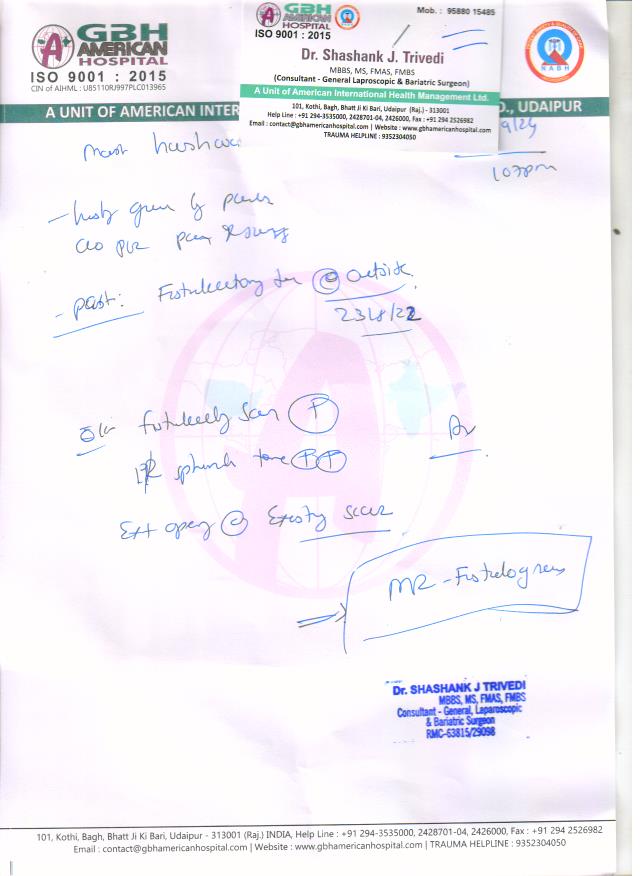 GBH
AMERICAN
HOSPITAL
ISO 9001 : 2015
CIN of AIHML : U85110RJ997PLC013965
GBH
AMERICAN
HOSPITAL
ISO 9001 : 2015
Mob. : 95880 15485
Dr. Shashank J. Trivedi
MBBS, MS, FMAS, FMBS
(Consultant - General Laproscopic & Bariatric Surgeon)
A Unit of American International Health Management Ltd.
101, Kothi, Bagh, Bhatt Ji Ki Bari, Udaipur (Raj.) - 313001
Help Line : +91 294-3535000, 2428701-04, 2426000, Fax : +91 294 2526982
Email : contact@gbhamericanhospital.com | Website : www.gbhamericanhospital.com
TRAUMA HELPLINE : 9352304050
NABH
A UNIT OF AMERICAN INTER
D., UDAIPUR
9/24
107pm
Mast
given by
c/o P/R
- past: Fistulectomy @ outside.
23/8/22
O/E Fistulectomy scar P
sphincter tone
Ext opening @ Existing scar
Adv
MR - Fistulogram
Dr. SHASHANK J TRIVEDI
MBBS, MS, FMAS, FMBS
Consultant - General, Laparoscopic
& Bariatric Surgeon
RMC-63815/29098
101, Kothi, Bagh, Bhatt Ji Ki Bari, Udaipur - 313001 (Raj.) INDIA, Help Line : +91 294-3535000, 2428701-04, 2426000, Fax : +91 294 2526982
Email : contact@gbhamericanhospital.com | Website : www.gbhamericanhospital.com | TRAUMA HELPLINE : 9352304050